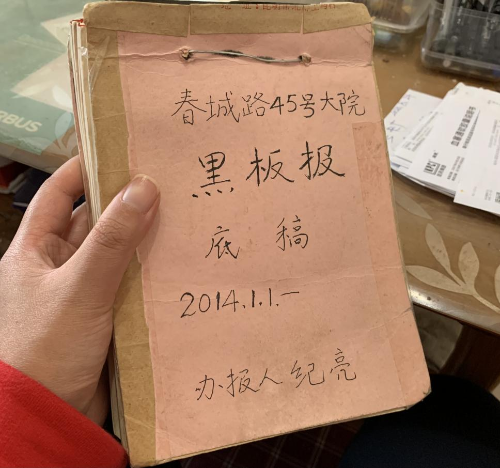 春城路45号大院
黑板报
底稿
2014.1.1.—
办报人纪亮
RBUS